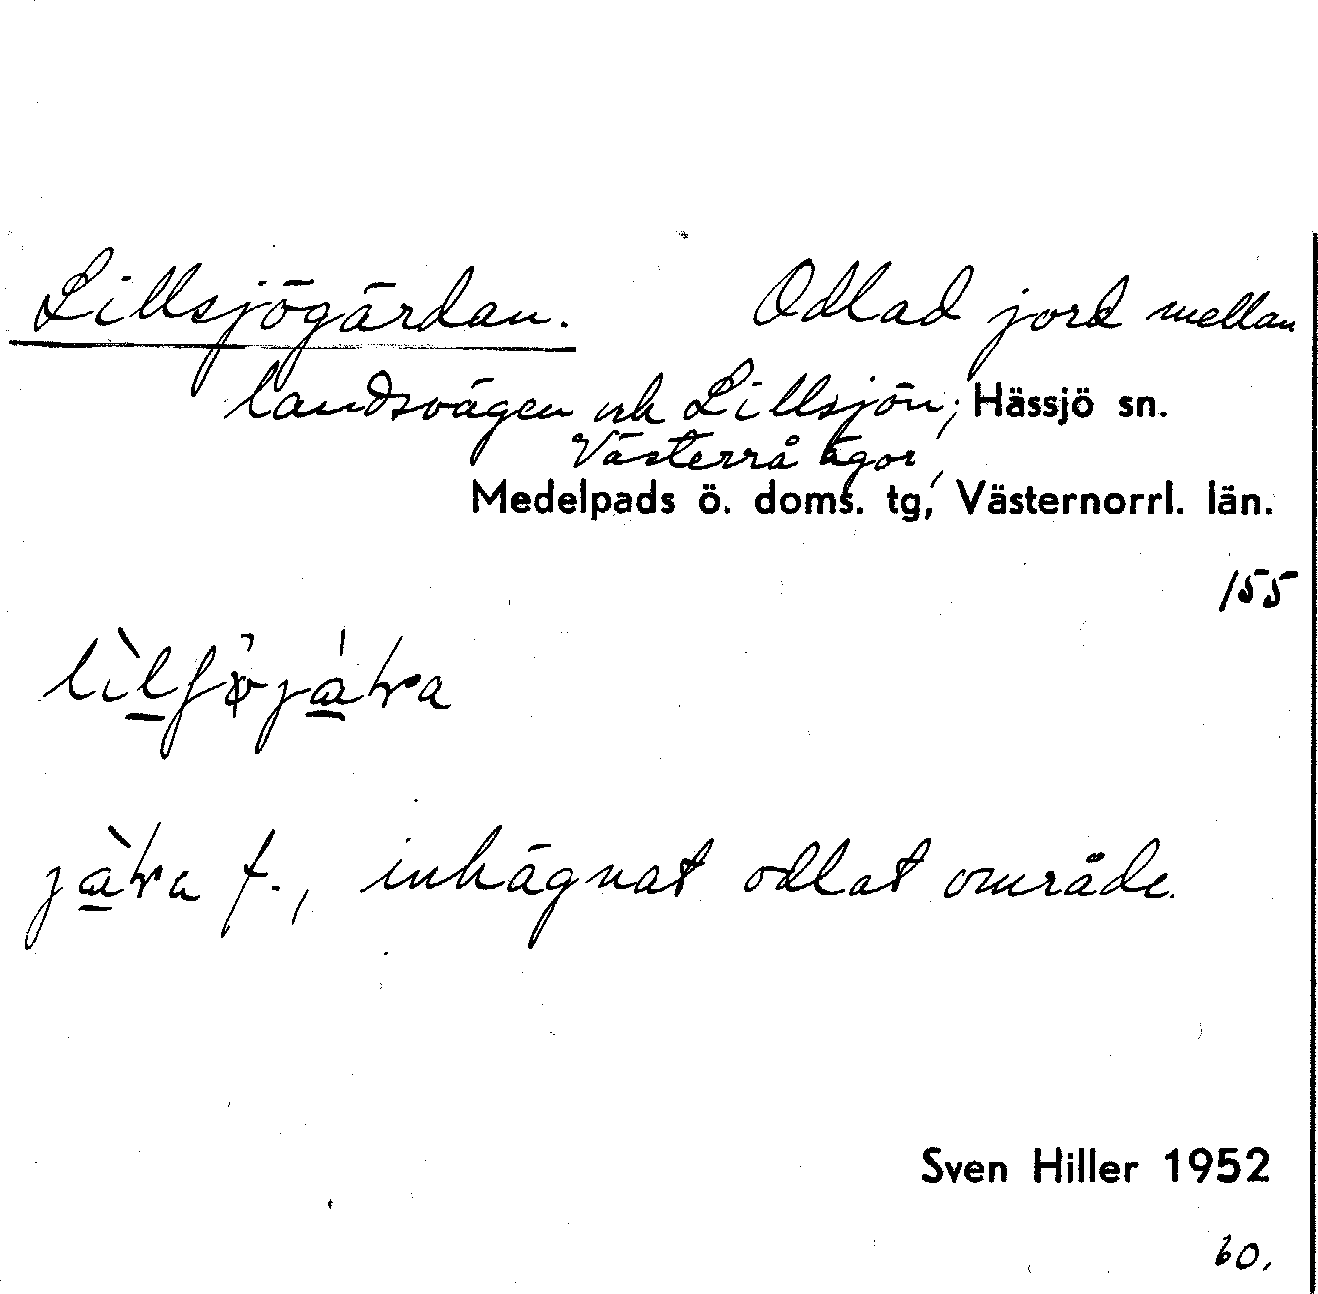 Lillsjögärdan. Odlad jord mellan
landsvägen och Lillsjön; Hässjö sn.
Västerrå ägor,
Medelpads ö. doms. tg, Västernorrl. län.
155
f., inhägnat odlat område.
Sven Hiller 1952
60.